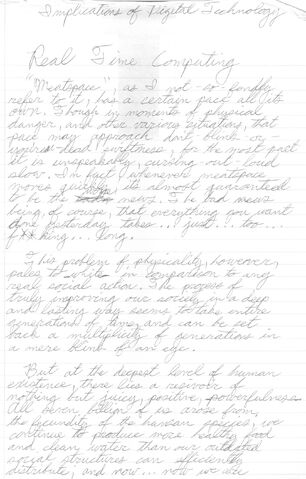 Implications of Digital Technology
Real Time Computing
"Meatspace", as I not-so-fondly
refer to it, has a certain pace all its
own. Though in moments of physical
danger, and other various situations, that
pace may approach don't-blink-or
you're-dead swiftness, for the most part
it is unspeakably, cursing out-loud
slow. In fact, whenever meatspace
moves quickly, its almost guaranteed
to be the news. The bad news
being, of course, that everything you want
done yesterday takes... just... too...
f**king... long.
This problem of physicality, however,
pales to white in comparison to any
real social action. The process of
truly improving our society in a deep
and lasting way seems to take entire
generations of time, and can be set
back a multiplicity of generations in
a mere blink of an eye.
But at the deepest level of human
existence, there lies a resivoir of
nothing but juicy, positive, powerfulness.
All seven billion of us arose from
the fecundity of the human species, we
continue to produce more healthy food
and clean water than our outdated
social structures can efficiently
distribute, and now... now we are